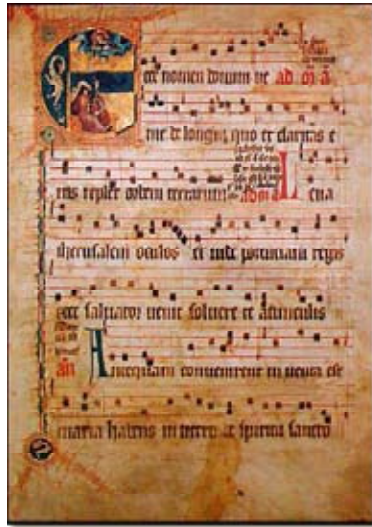 cce nomen domini ve ad
nit de longinquo et claritas e
ius replet orbem terrarum L eva
iherusalem oculos et vide potentiam regis
ecce salvator venit solvere te a vinculis
an Antequam convenirent inventa est
maria habens in utero de spiritu sancto